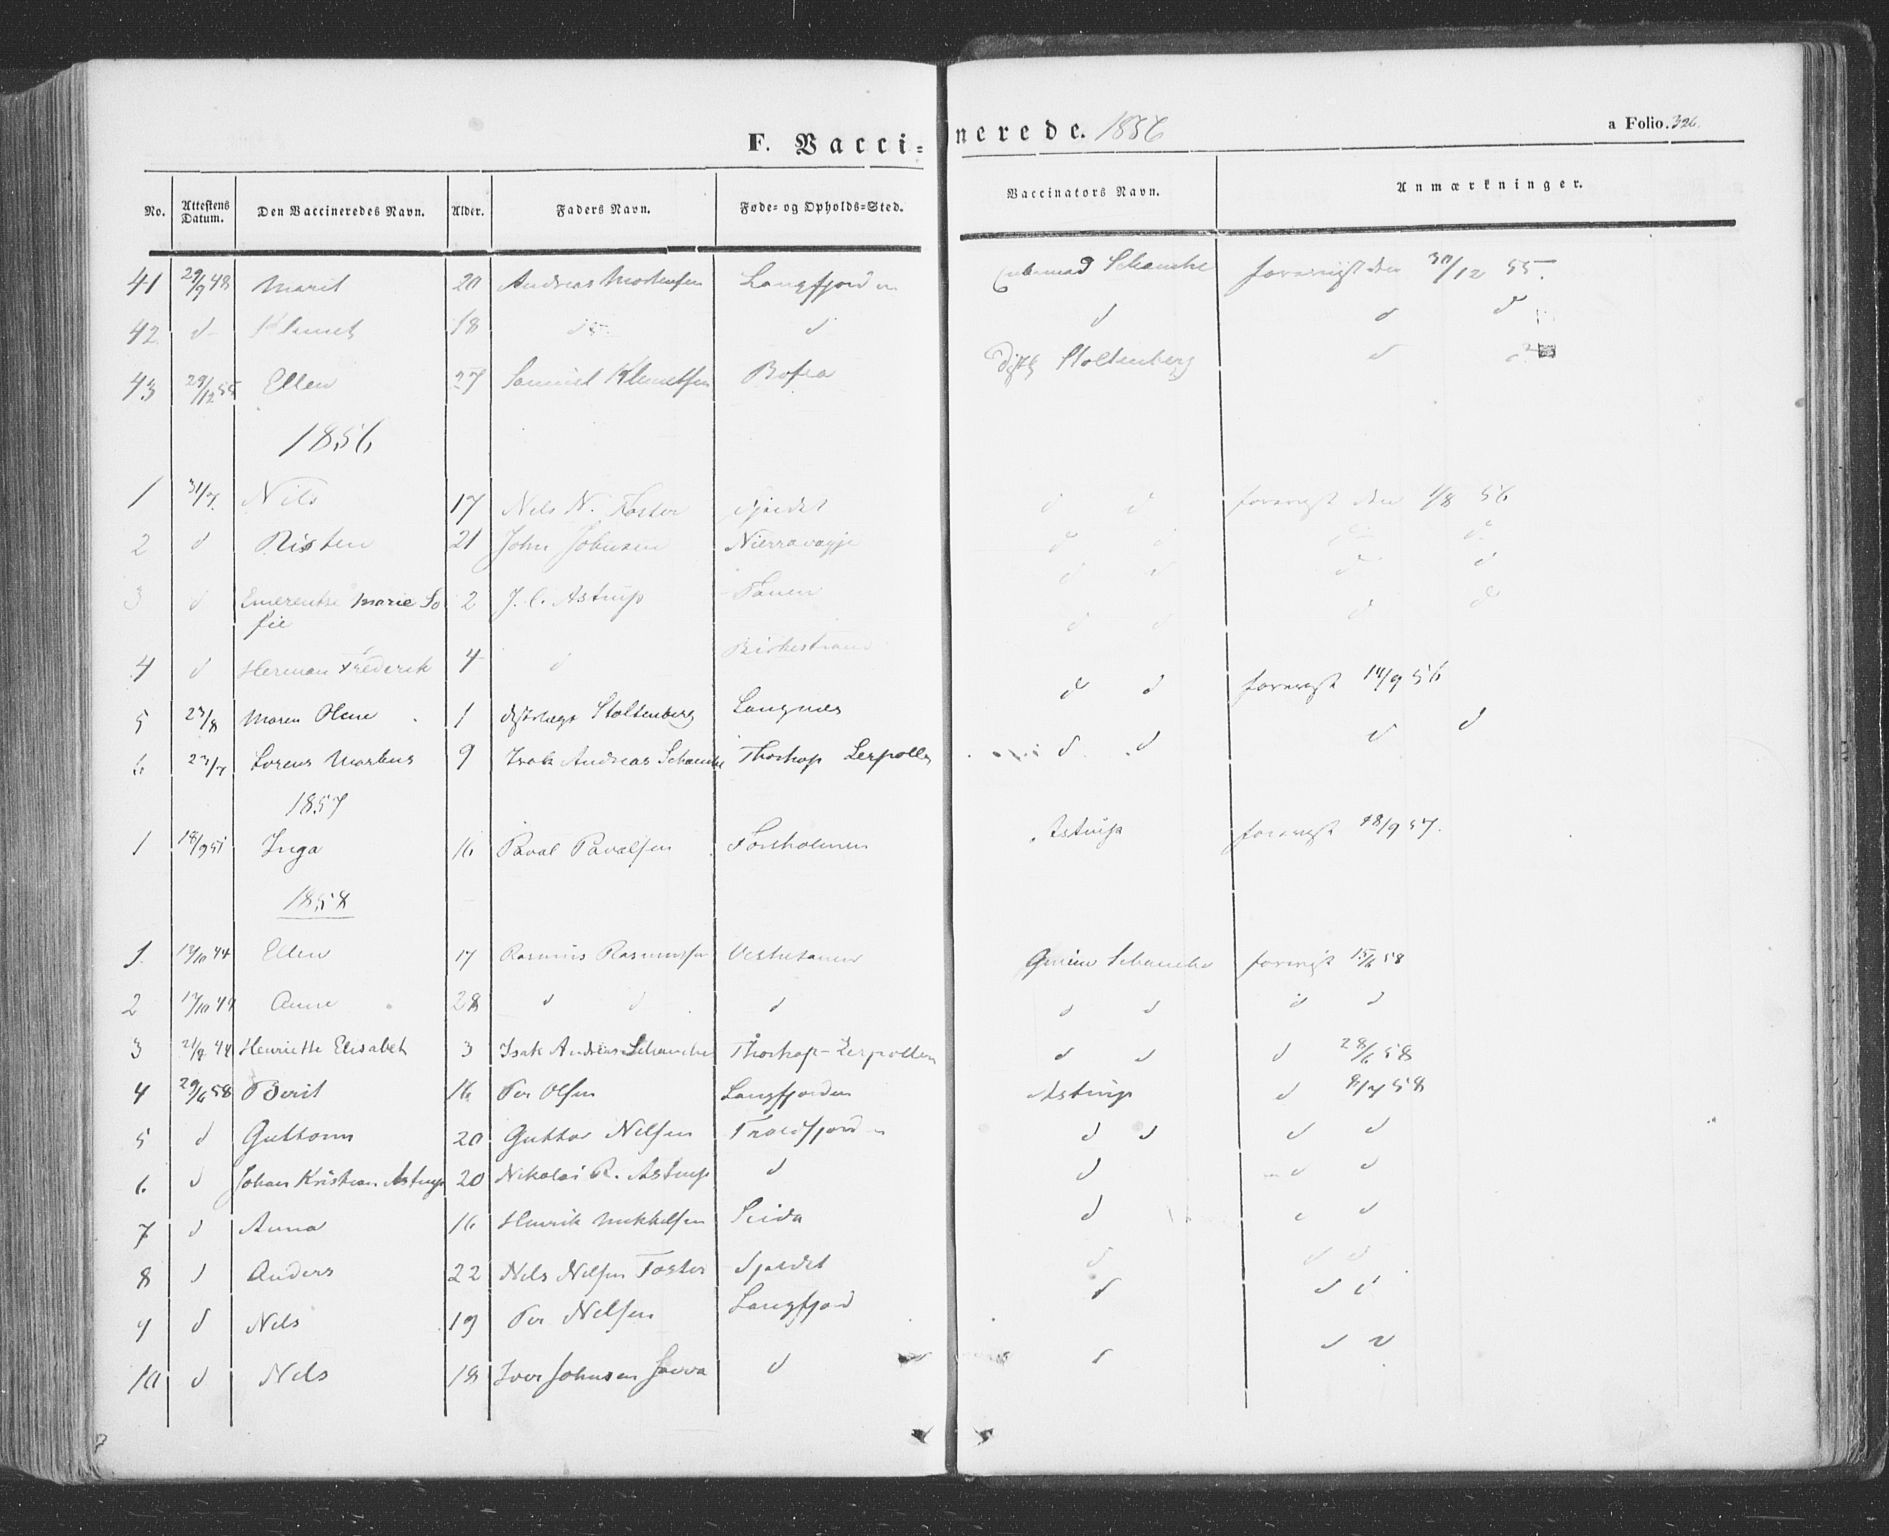 F. Vacci=nerede. 1856
a Folio. 326.
No. Attestens Datum. Den Vaccineredes Navn. Alder. Faders Navn. Føde- og Opholds-Sted. Vaccinators Navn. Anmærkninger.
41 29/9 48 Marit 20 Andreas Mortensen Langfjorden Schanche 30/12 55.
42 d Klemet 18 d d d d d
43 29/12 55 Ellen 27 Samuel Klemetsen Stoltenberg d
1856
1 31/7 Nils 17 Nels N. Foster d d 1/8 56
2 d Risten 21 John Johnsen Nierravagje d d d d
3 d Emerentse Marie So 2 J. C. Astrup Tanen d d d d
fie
4 d Herman Frederik 4 d Birkestrand d d d d
5 23/8 Maren Olene 1 Stoltenberg Langnes d d 14/9 56
6 23/7 Lorens Markus 9 Isak Andreas Schanche Thorhop Lerpollen d d d d
1857
1 18/9 51 Inga 16 Paval Pavalsen Forsholmen Astrup 18/9 57.
1858
1. 17/10 44 Ellen 17 Rasmus Rasmussen Vestertanen Schanche 15/6 58
2 17/10 44 Anne 28 d d d d d d d
3 21/8 44 Henriette Elisabet 3 Isak Andreas Schanche Thorhop-Lerpollen d d d 28/6 58
4 29/6 58 Berit 16 Per Olsen Langfjorden Astrup d 8/7 58
5 d Guttorm 20 Guttor Nilsen Troldfjorden d d d d
6 d Johan Kristian Astrup 20 Nikolai R. Astrup d d d d
7 d Anna 16 Henrik Mikkelsen Seida d d d
8 d Anders 22 Nils Nilsen Foster d d d
9 d Nils 19 Per Nilsen Langfjord d d d
10 d Nils 18 Iver Johnsen Savva d d d d